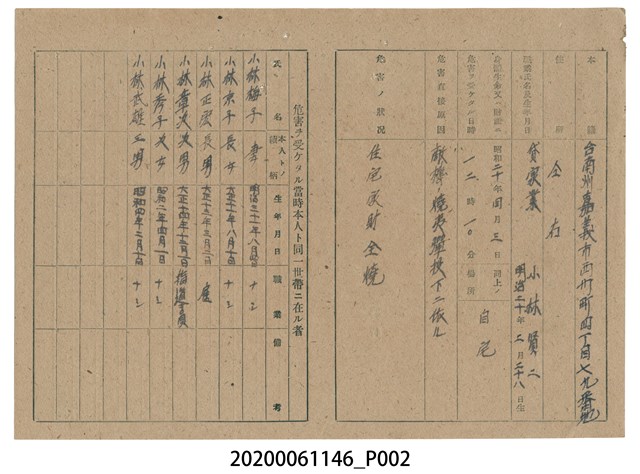 本籍 台南州嘉義市西門町四丁目七九番地
住所 仝右
職業氏名及生年月日 貸家業 小林賢二 明治二十年二月二十八日生
身體生命又ハ財産ニ危害ヲ受ケタル日時 昭和二十年四月三日
一二時一〇分 場所 自宅
危害直接原因 敵機ノ焼夷彈投下ニ依ル
危害ノ狀況 住宅家財全燒
危害ヲ受ケタル當時本人ト同一世帶ニ在ル者
氏名 本人トノ續柄 生年月日 職業 備考
小林梅子 妻 明治三十一年八月 ナシ
小林京子 長女 大正十一年八月 ナシ
小林正宏 長男 大正十三年三月
小林章次 次男 大正十四年十二月
小林秀子 次女 昭和二年四月一日 ナシ
小林武雄 三男 昭和四年十二月 ナシ
20200061146_P002